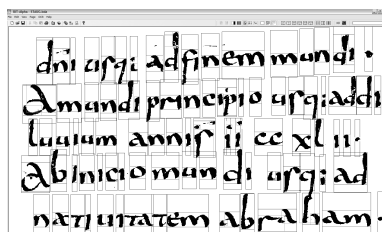 dni usq; ad finem mundi ·
A mundi principio usq; ad di
luuium annis ii cc xl ii·
Ab inicio mundi usq; ad
natiuitatem abraham ·